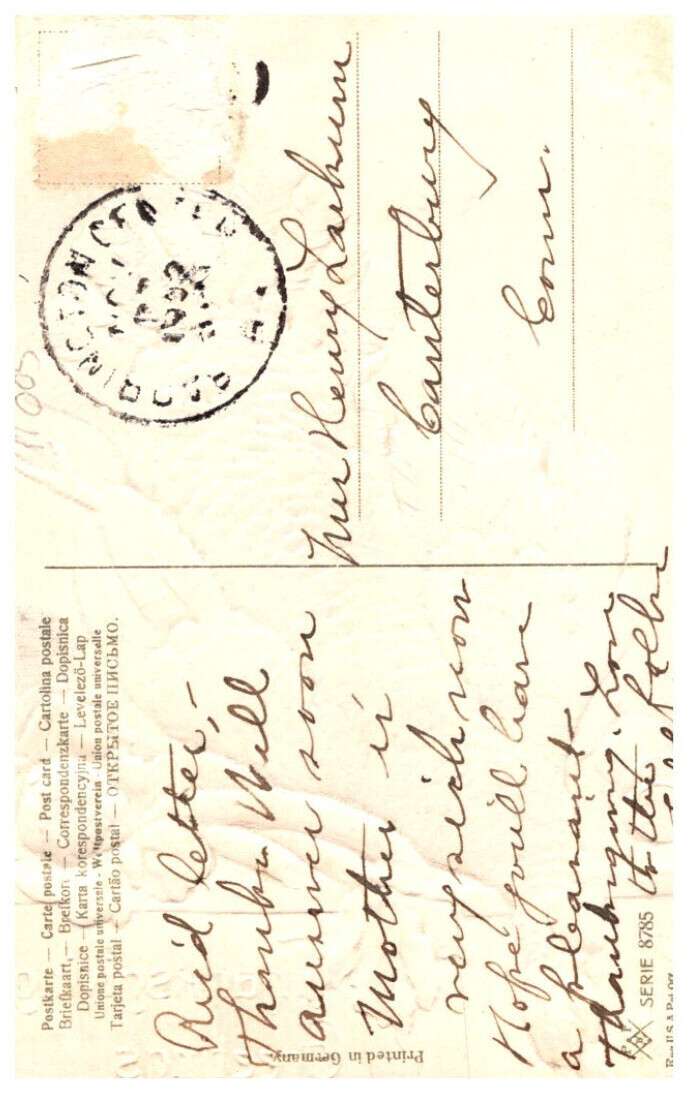 Postkarte — Carte postale — Post card — Cartolina postale
Briefkaart — Brefkort — Correspondenzkarte — Dopisnica
Dopisnice — Karta korespondencyjna — Levelező-Lap
Unione postale universale - Weltpostverein - Union postale universelle
Tarjeta postal — Cartão postal — ОТКРЫТОЕ ПИСЬМО.
Rec'd letter,-
Thanks. Will
answer soon
Mother is
very sick now
Hope you'll have
a pleasant
Thanksgiving. Love
to the
Printed in Germany.
SERIE 8785
CENTER
Henry
Canterbury
Conn.